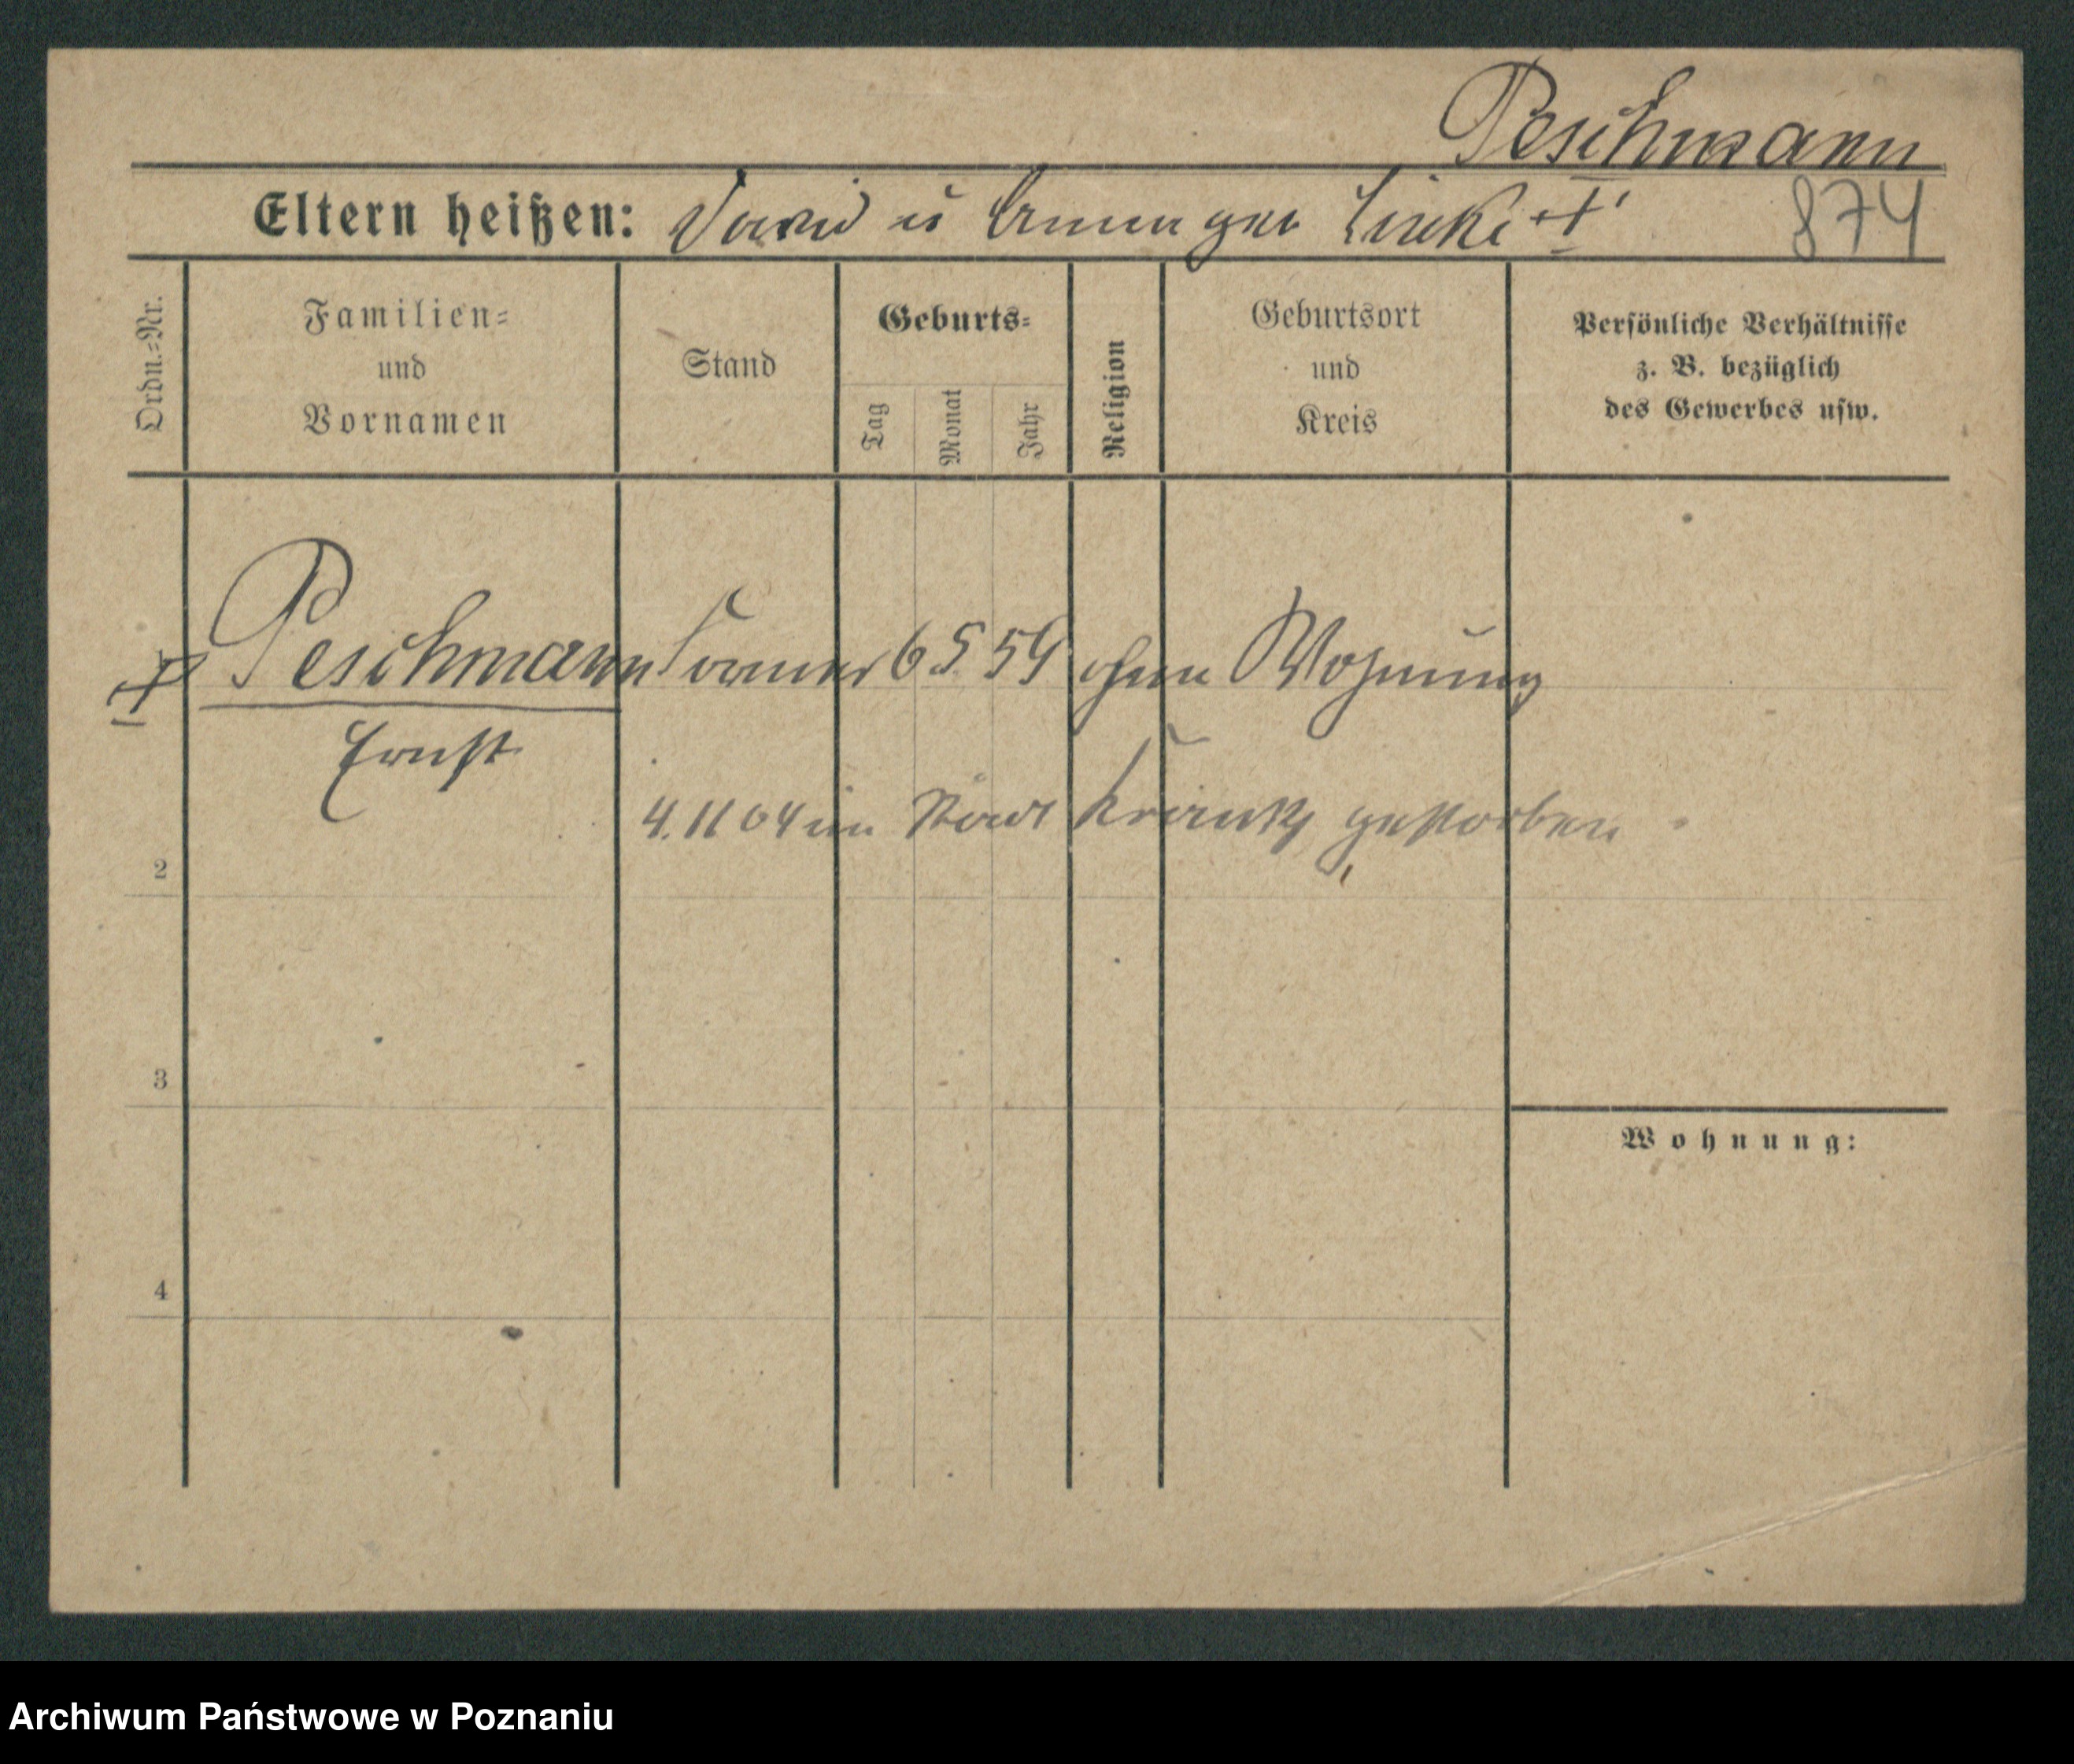 Peschmann
Eltern heißen: David u Anna geb Linke + 874
Ordn.=Nr.
Familien=
und
Vornamen
Stand
Geburts=
Tag
Monat
Jahr
Religion
Geburtsort
und
Kreis
Persönliche Verhältnisse
z. B. bezüglich
des Gewerbes usw.
+ Peschmann 6 5. 54 ohne Wohnung
Ernst
4. 11 04 im Stadt Krankh gestorben
2
3
Wohnung:
4
Archiwum Państwowe w Poznaniu